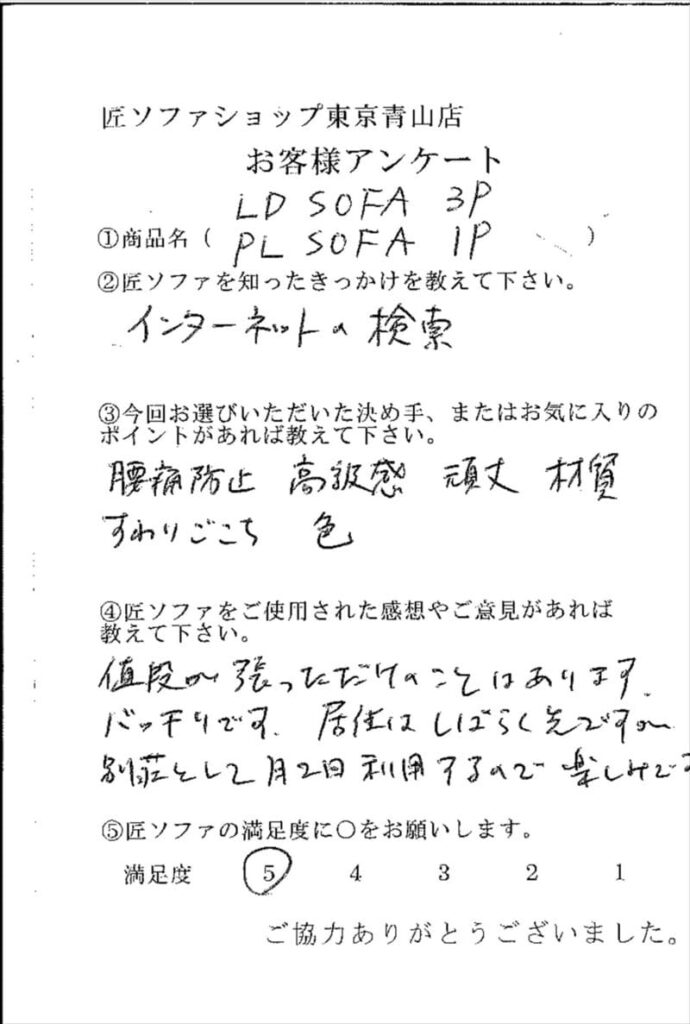 匠ソファショップ東京青山店
お客様アンケート
LD SOFA 3P
①商品名( PL SOFA 1P )
②匠ソファを知ったきっかけを教えて下さい。
インターネットの検索
③今回お選びいただいた決め手、またはお気に入りの
ポイントがあれば教えて下さい。
腰痛防止 高級感 頑丈 材質
すわりごこち 色
④匠ソファをご使用された感想やご意見があれば
教えて下さい。
値段が張っただけのことはあります。
バッチリです。居住はしばらく先ですが
別荘として月2回利用するので楽しみです
⑤匠ソファの満足度に○をお願いします。
満足度 5 4 3 2 1
ご協力ありがとうございました。